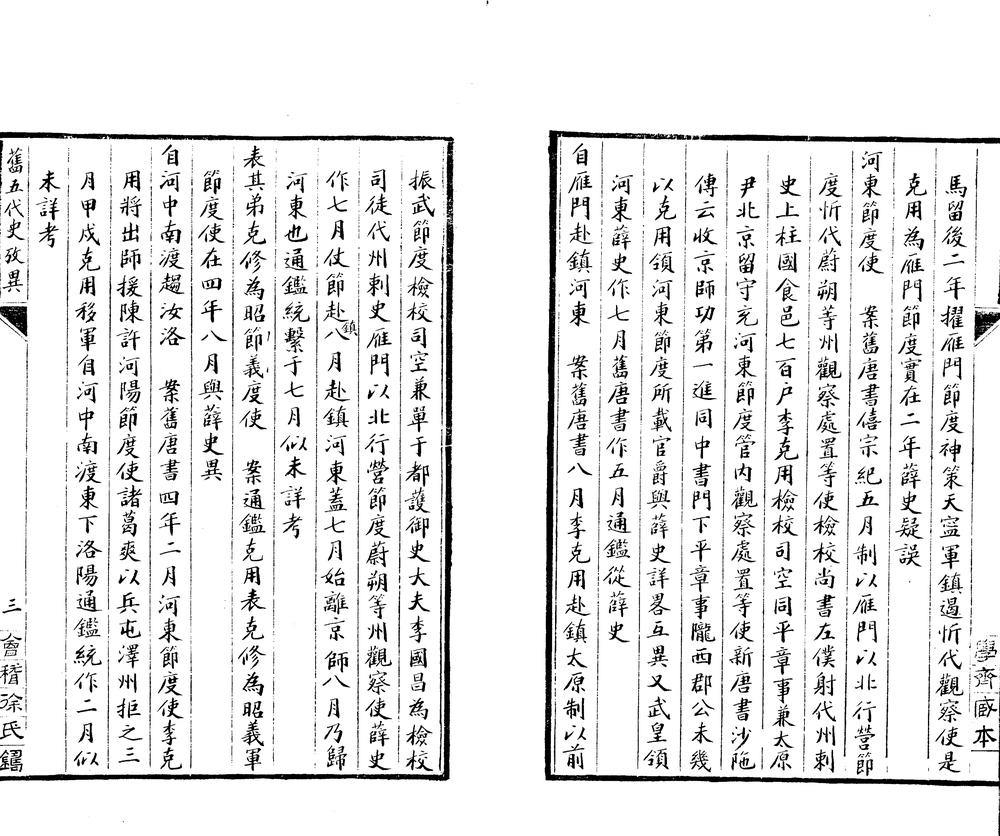 馬留後二年擢雁門節度神策天寍軍鎮遏忻代觀察使是
克用為雁門節度實在二年薛史疑誤
河東節度使　案舊唐書僖宗紀五月制以雁門以北行營節
度忻代蔚朔等州觀察處置等使檢校尚書左僕射代州刺
史上柱國食邑七百户李克用檢校司空同平章事兼太原
尹北京留守充河東節度管内觀察處置等使新唐書沙陁
傳云收京師功第一進同中書門下平章事隴西郡公未幾
以克用領河東節度所載官爵與薛史詳畧互異又武皇領
河東薛史作七月舊唐書作五月通鑑從薛史
自雁門赴鎮河東　案舊唐書八月李克用赴鎮太原制以前
學齋䘵本
振武節度檢校司空兼單于都護御史大夫李國昌為檢校
司徒代州刺史雁門以北行營節度蔚朔等州觀察使薛史
作七月仗節赴鎮八月赴鎮河東蓋七月始離京師八月乃歸
河東也通鑑統繫于七月似未詳考
表其弟克修為昭節義度使　案通鑑克用表克修為昭義軍
節度使在四年八月與薛史異
自河中南渡趨汝洛　案舊唐書四年二月河東節度使李克
用將出師援陳許河陽節度使諸葛爽以兵屯澤州拒之三
月甲戌克用移軍自河中南渡東下洛陽通鑑統作二月似
未詳考
舊五代史攷異
三
會稽徐氏鑄